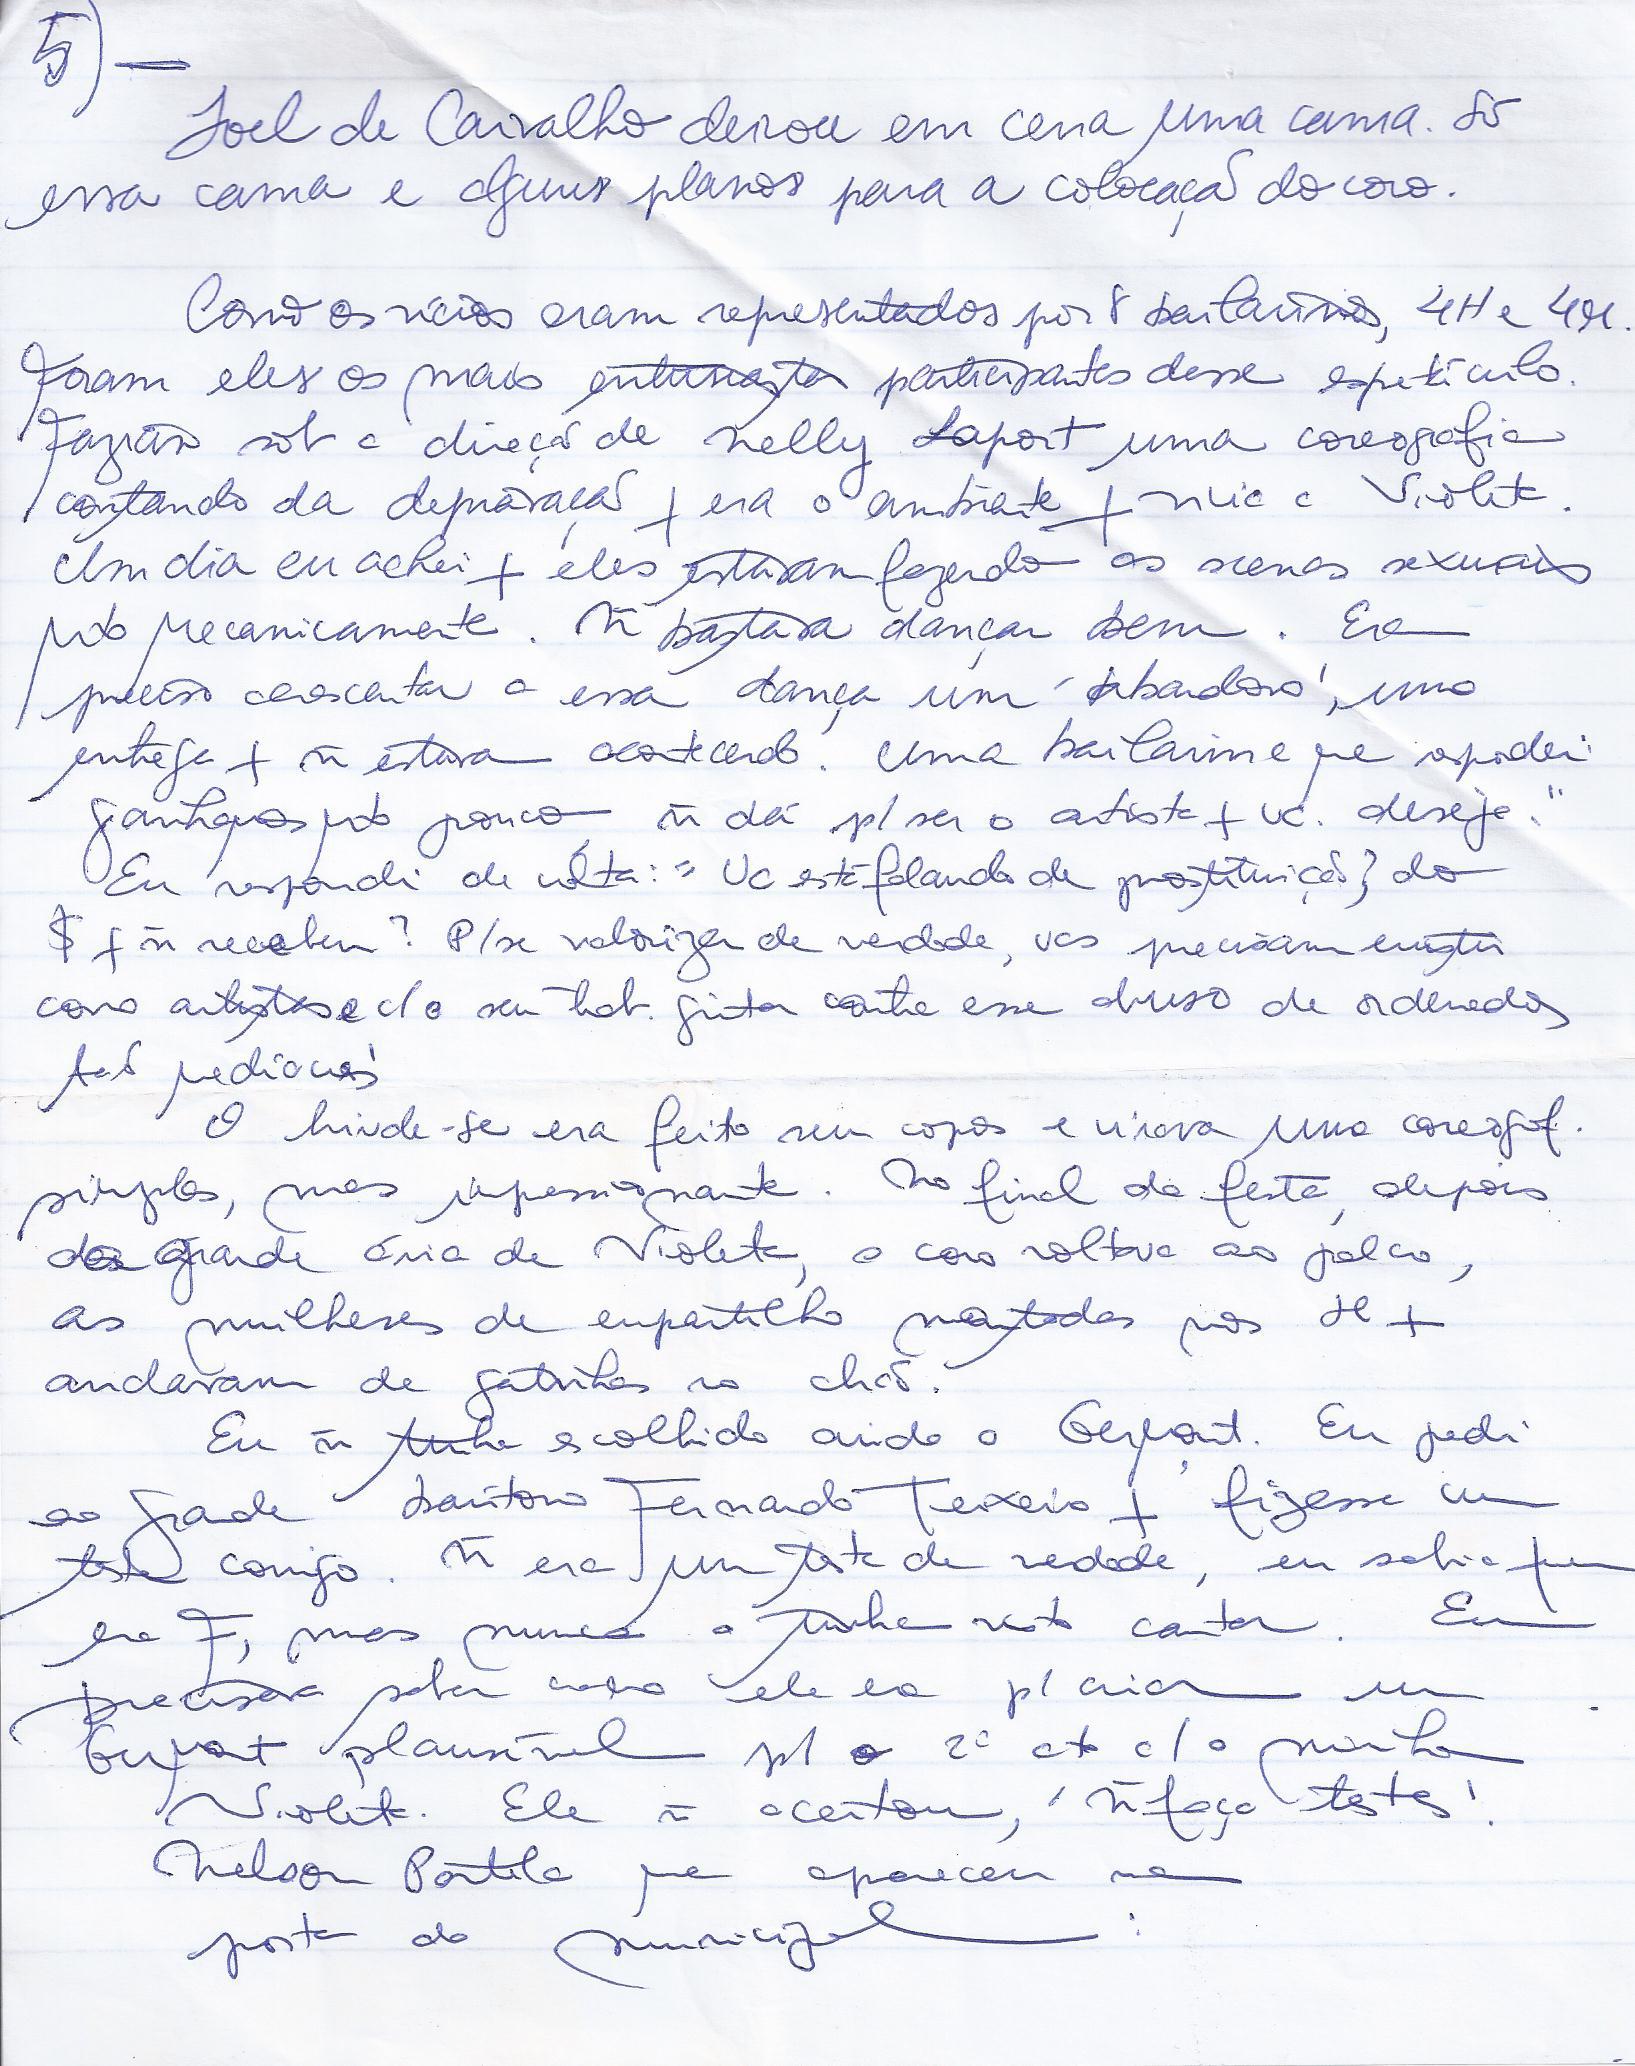 5) —
Joel de Carvalho deixou em cena uma cama. Só
essa cama e alguns planos para a colocação do coro.
Como os vícios eram representados por 8 bailarinos, 4H e 4M.
Foram eles os mais entusiasta participantes desse espetáculo.
Faziam sob a direção de Nelly Laport uma coreografia
contando da depravação + era o ambiente + vivia a Violeta.
Um dia eu achei + eles estavam fazendo as scenas sexuais
mto mecanicamente. Ñ bastava dançar bem. Era
preciso acrescentar a essa dança um 'abandono', uma
entrega + ñ estava acontecendo. Uma bailarina me respondeu:
ganhamos mto pouco ñ dá p/ ser o artista + vc. deseja."
Eu respondi de volta: "Vc está falando de prostituição? do
$ + ñ recebem? P/ se valorizar de verdade, vcs precisam existir
como artistas e c/ o seu trab. gritar contra esse abuso de ordenados
tão mediocres!
O brinde-se era feito sem copos e virava uma coreogrf.
simples, mas impressionante. No final da festa, depois
da grande ária de Violeta, o coro voltava ao palco,
as mulheres de espartilho montadas nos H +
andavam de gatinhas no chão.
Eu ñ tinha escolhido ainda o Germont. Eu pedi
ao grande barítono Fernando Teixeira + fizesse um
teste comigo. Ñ era um teste de verdade, eu sabia quem
era F, mas nunca o tinha visto cantar. Eu
precisava saber como ele era p/ criar um
Germont plausível p/ o 2º ato c/ a minha
Violeta. Ele ñ aceitou, 'ñ faço testes'.
Nelson Portela me apareceu na
porta do Municipal :